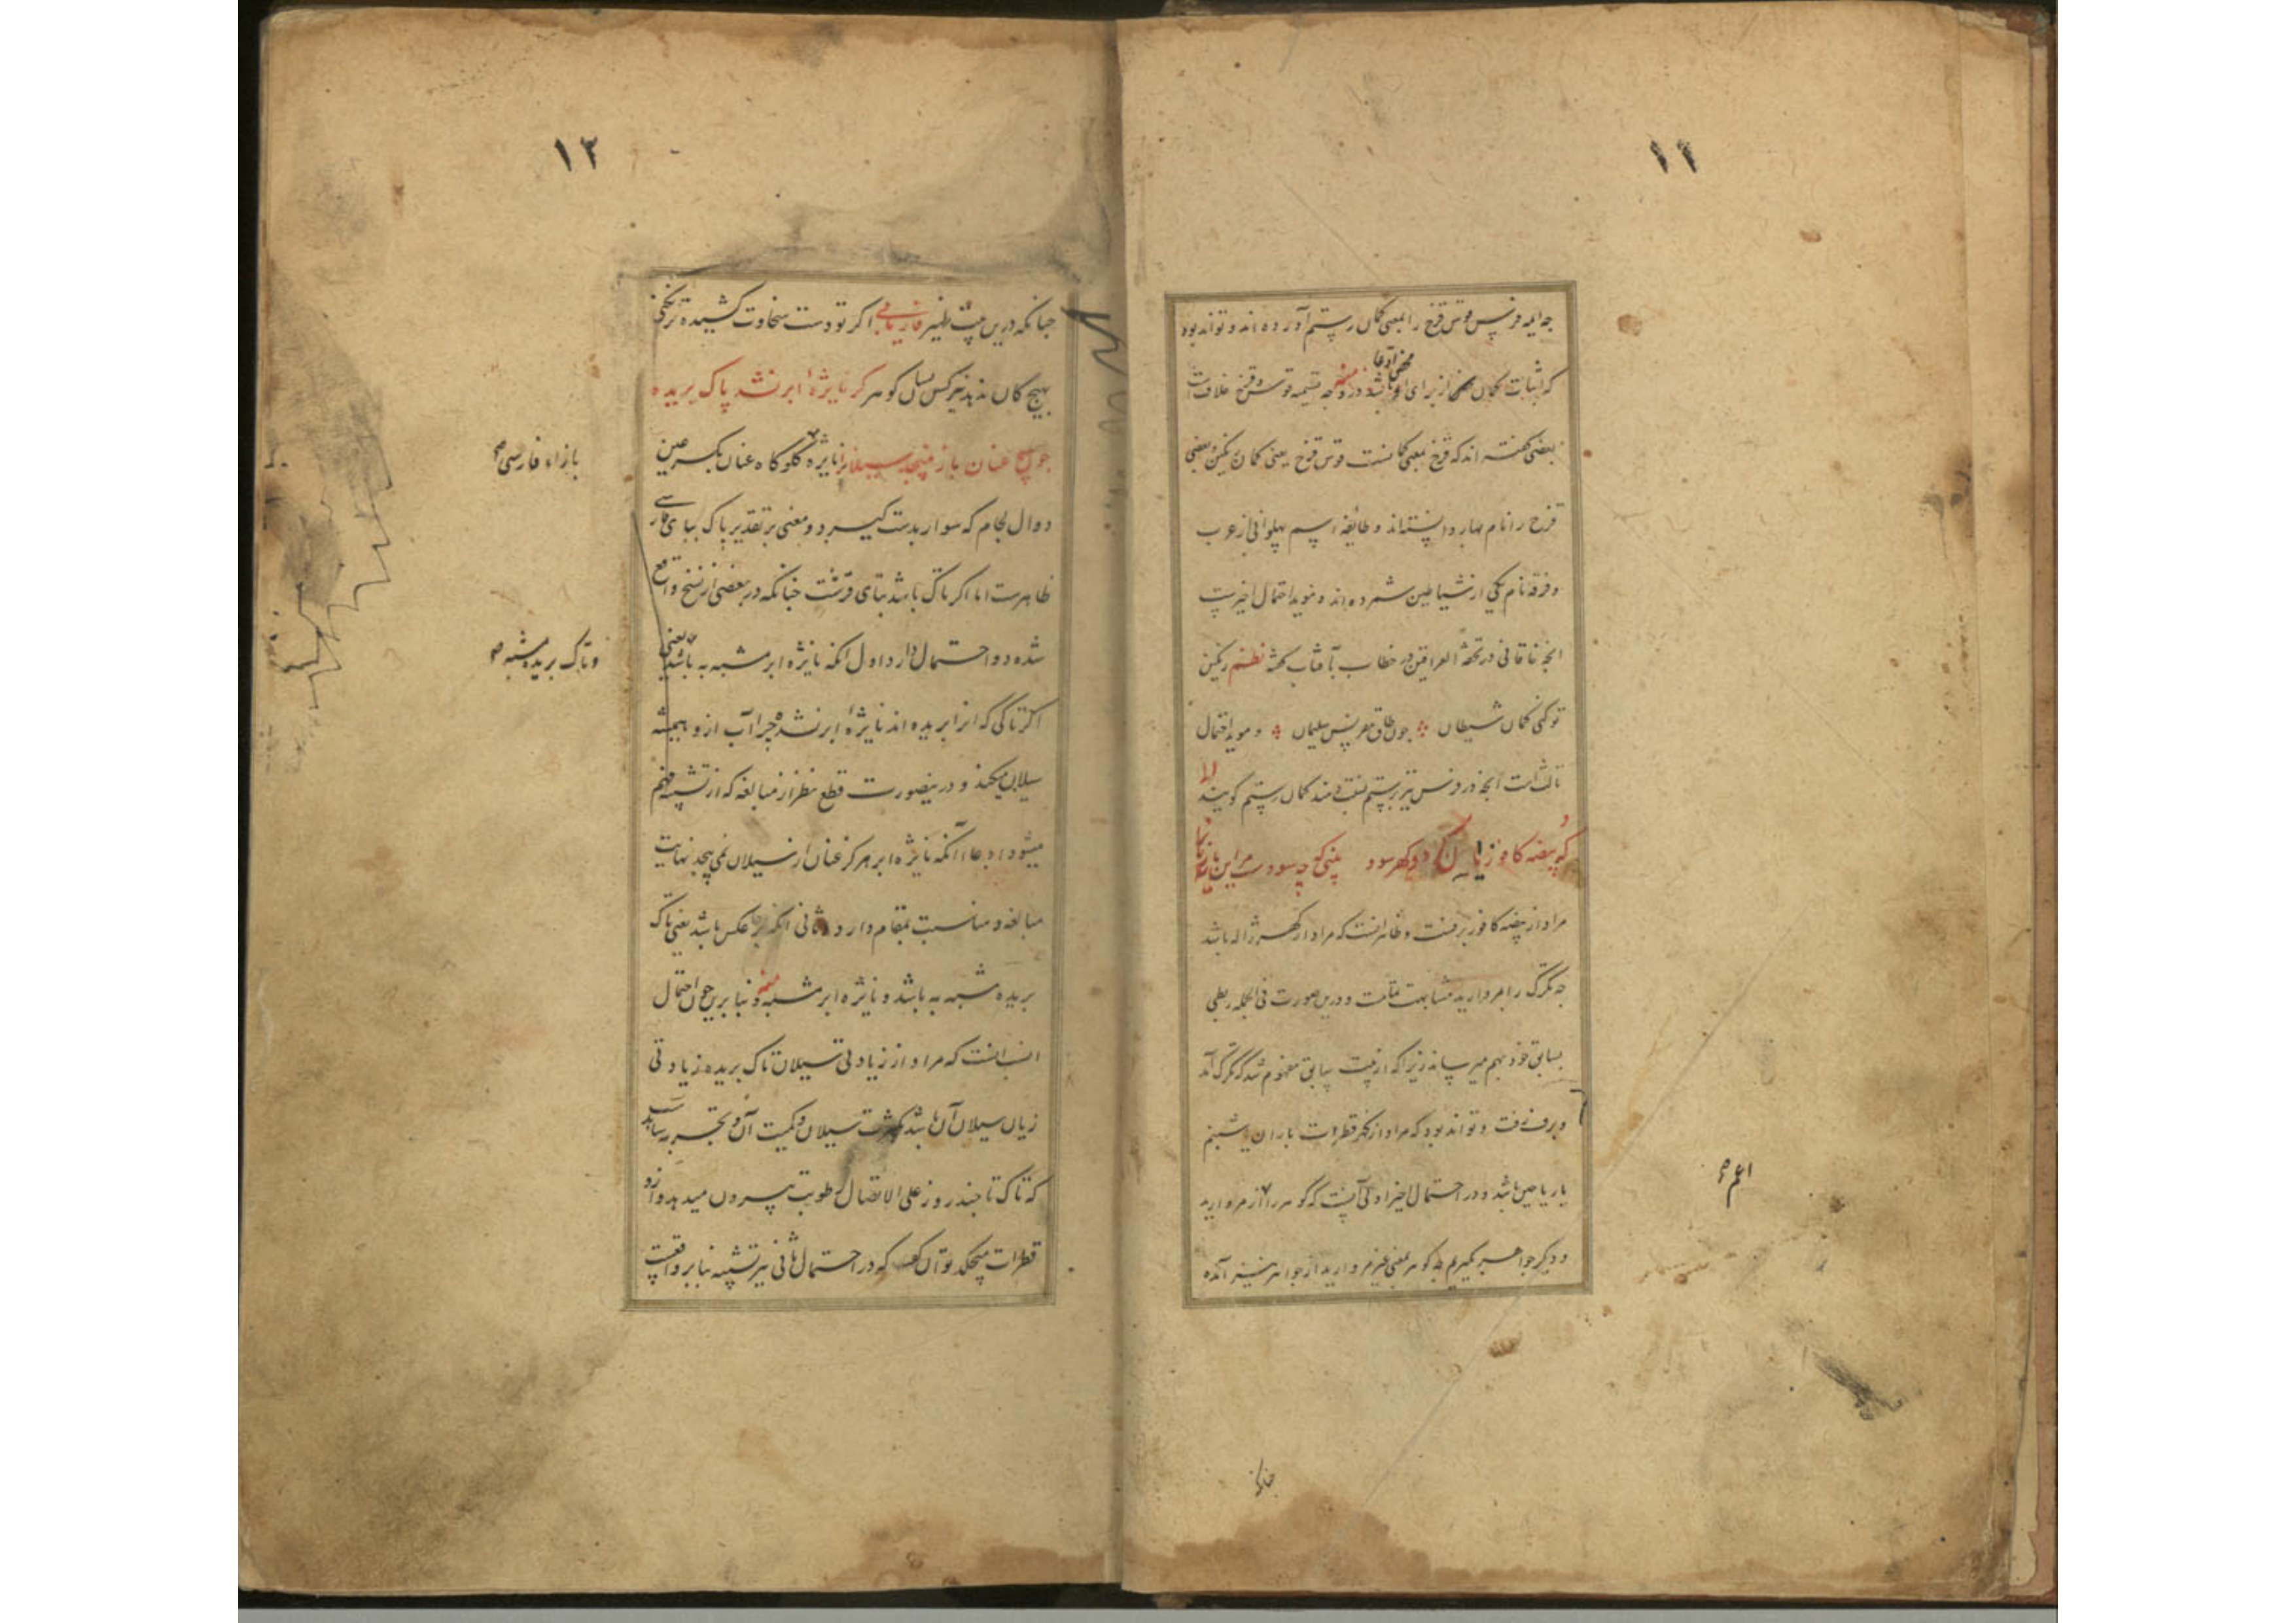 ١١
چه ایمه فرس قوس قزح را بمعنی کمان رستم آورده اند و تواند بود
که اثبات کمان از برای او محض ادعا باشد و در وجه تسمیه قوس قزح خلافست
بعضی گفته اند که قزح بمعنی
قزح را نام بهار دانسته اند و طائفه اسم پهلوانی از عرب
و فرقه نام یکی از شیاطین شمرده اند و موید احتمال اخیرست
انچه خاقانی در تحفة العراقین در خطاب بآفتاب گفته نظم رنگین
تو کنی کمان شیطان چون طاق سلیمان و موید احتمال
ثالث است انچه در فرس نیز برستم نسبت دهند کمان رستم گویند
که بیضه کافور زیان کرد و گهر سود بینی که چه سودست مر این
مراد از بیضه کافور برفست و ظاهر انست که مراد از گهر ژاله باشد
چه تگرگ را بمروارید مشابهت تمامست و درین صورت فی الجمله ربطی
بسابق خود بهم میرساند زیرا که از بیت سابق مفهوم شد که تگرگ آمد
و برف رفت و تواند بود که مراد از گهر قطرات باران یا شبنم
یا ریاحین باشد و در احتمال اخیر اولی آنست که گوهر را از مروارید
اعم
و دیگر جواهر گیریم چه گوهر بمعنی غیر مروارید از جواهر نیز آمده
چنانکه
١٢
چنانکه درین بیت ظهیر فاریابی اگر تو دست سخاوت کشیده تر نکنی
بهیچ کان ندهد نیز کس نشان گوهر گر نایژهٔ ابر نشد پاک بریده
چون هیچ عنان باز نپیچد سیلان را نایژه گلوگاه عنان بکسر عین
دوال لجام که سوار بدست گیرد و معنی بر تقدیر پاک ببای فارسی
بازاء فارسی
ظاهرست اما اگر تاک باشد بتای قرشت چنانکه در بعضی از نسخ واقع
شده دو احتمال دارد اول انکه نایژه ابر مشبه به باشد یعنی
و تاک بریده مشبه
اگر تاکی که انرا بریده اند نایژهٔ ابر نشد چرا آب ازو همیشه
سیلان میکند و درینصورت قطع نظر از مبالغه که از تشبیه فهم
میشود ادعا آنکه نایژه ابر هرگز عنان از سیلان نمی پیچد نهایت
مبالغه و مناسبت بمقام دارد و ثانی انکه برعکس باشد یعنی تاک
بریده مشبه به باشد و نایژه ابر مشبه و بنا برین چون احتمال
انسب انست که مراد از زیادتی سیلان تاک بریده زیادتی
زمان سیلان آن باشد نه کثرت سیلان و کمیت آن و بتجربه رسیده
که تاک تا چند روز علی الاتصال رطوبت بیرون میدهد و ازو
قطرات میچکد توان گفت که در احتمال ثانی نیز تشبیه بنا بر واقعست